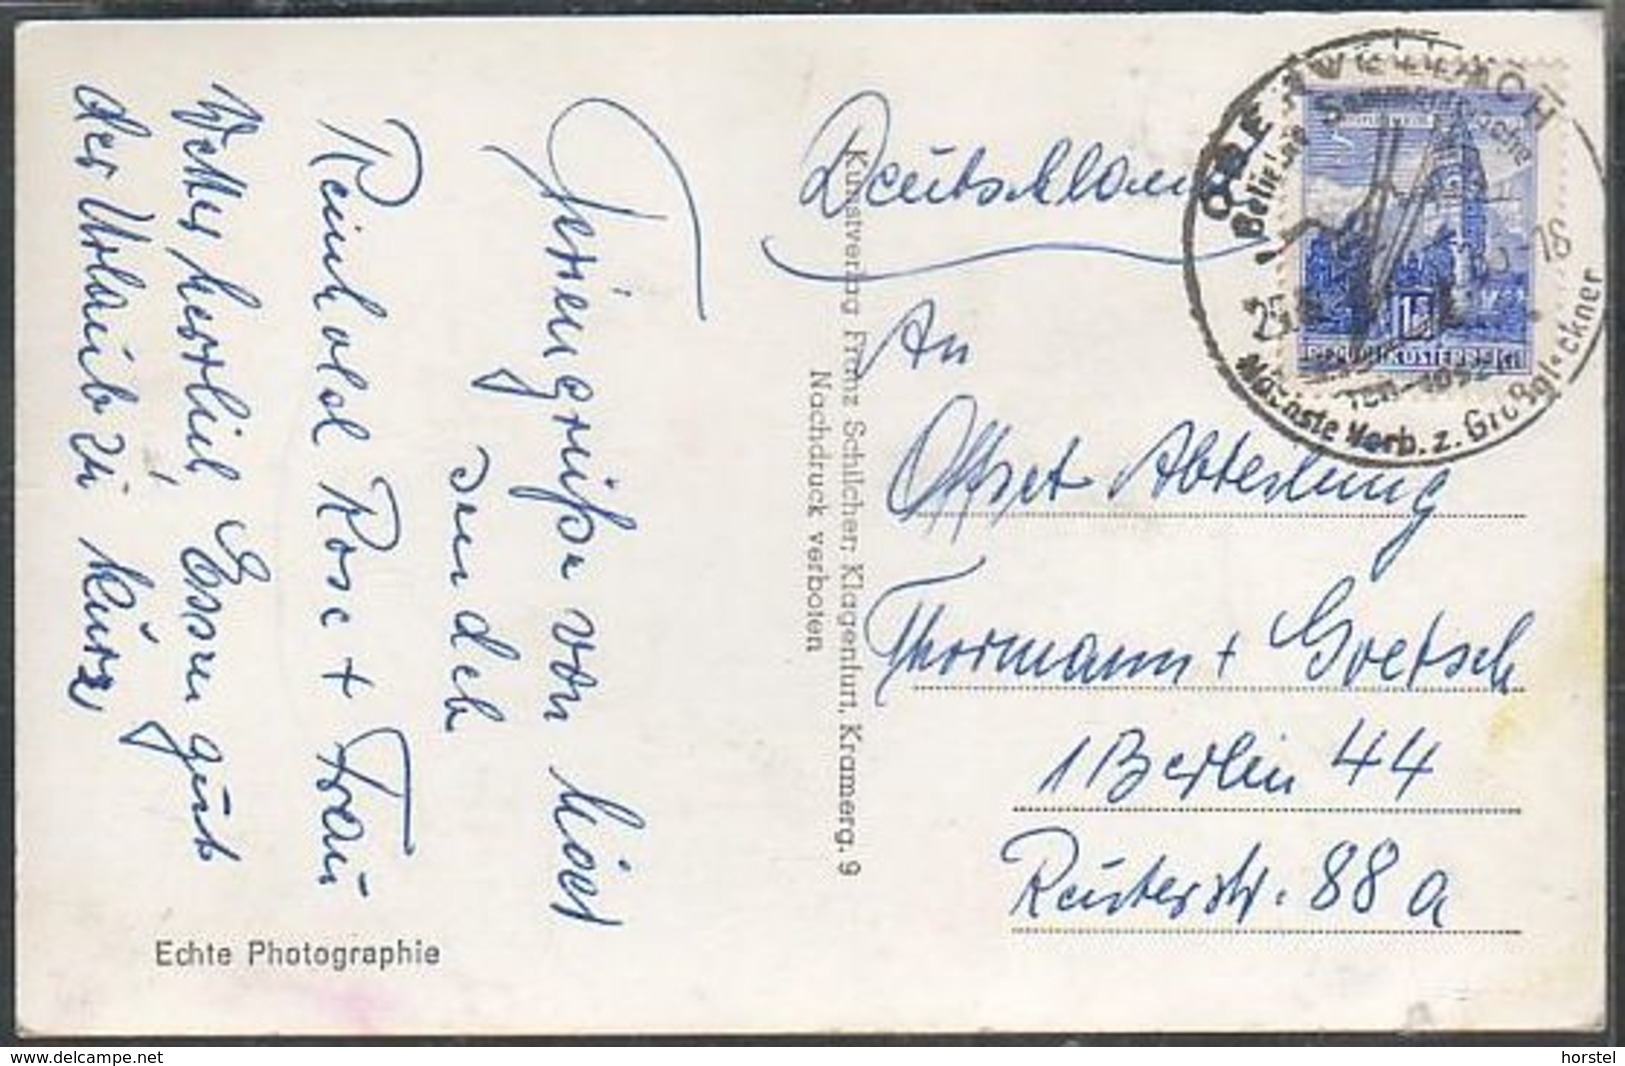 Feriengrüße von hier
senden
Reinhold Rose + Frau
Wetter herrlich, Essen gut
der Urlaub zu kurz
Echte Photographie
Kunstverlag Franz Schilcher, Klagenfurt, Kramerg. 9
Nachdruck verboten
OBERVELLACH
Beliebte Sommerfrische
-18
Nächste Verb. z. Großglockner
REPUBLIK ÖSTERREICH
Deutschland
An
Offset Abteilung
Thormann + Goetsch
1 Berlin 44
Reuterstr. 88 a
delcampe.net
horstel